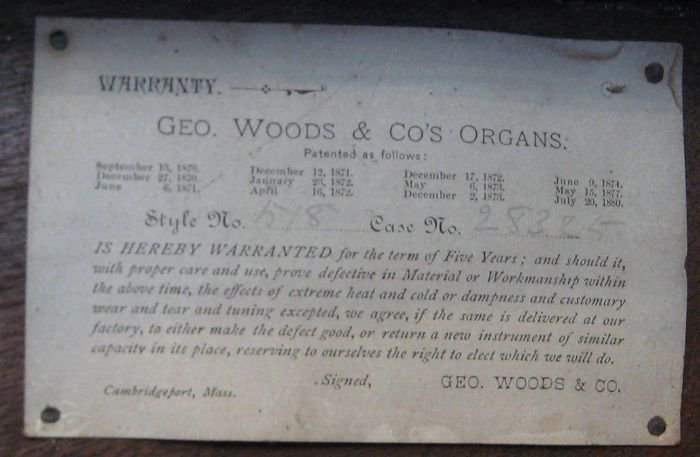 WARRANTY.
GEO. WOODS & CO'S ORGANS.
Patented as follows:
September 13, 1870. December 12, 1871. December 17, 1872. June 9, 1874.
December 27, 1870. January 23, 1872. May 6, 1873. May 15, 1877.
June 6, 1871. April 16, 1872. December 2, 1873. July 20, 1880.
Style No. 518 Case No. 28325
IS HEREBY WARRANTED for the term of Five Years; and should it,
with proper care and use, prove defective in Material or Workmanship within
the above time, the effects of extreme heat and cold or dampness and customary
wear and tear and tuning excepted, we agree, if the same is delivered at our
factory, to either make the defect good, or return a new instrument of similar
capacity in its place, reserving to ourselves the right to elect which we will do.
Signed, GEO. WOODS & CO.
Cambridgeport, Mass.